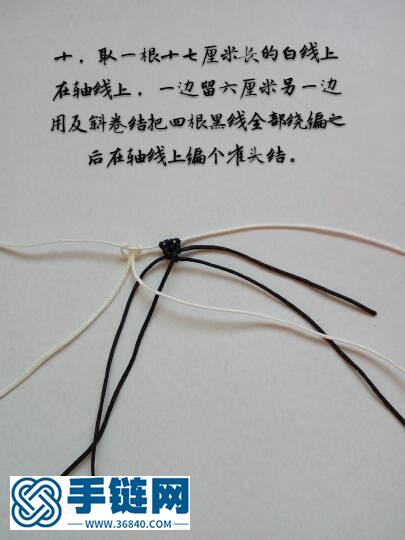 十，取一根十七厘米长的白线上
在轴线上，一边留六厘米另一边
用反斜卷结把四根黑线全部绕编之
后在轴线上编个雀头结。
手链网
WWW.36840.COM